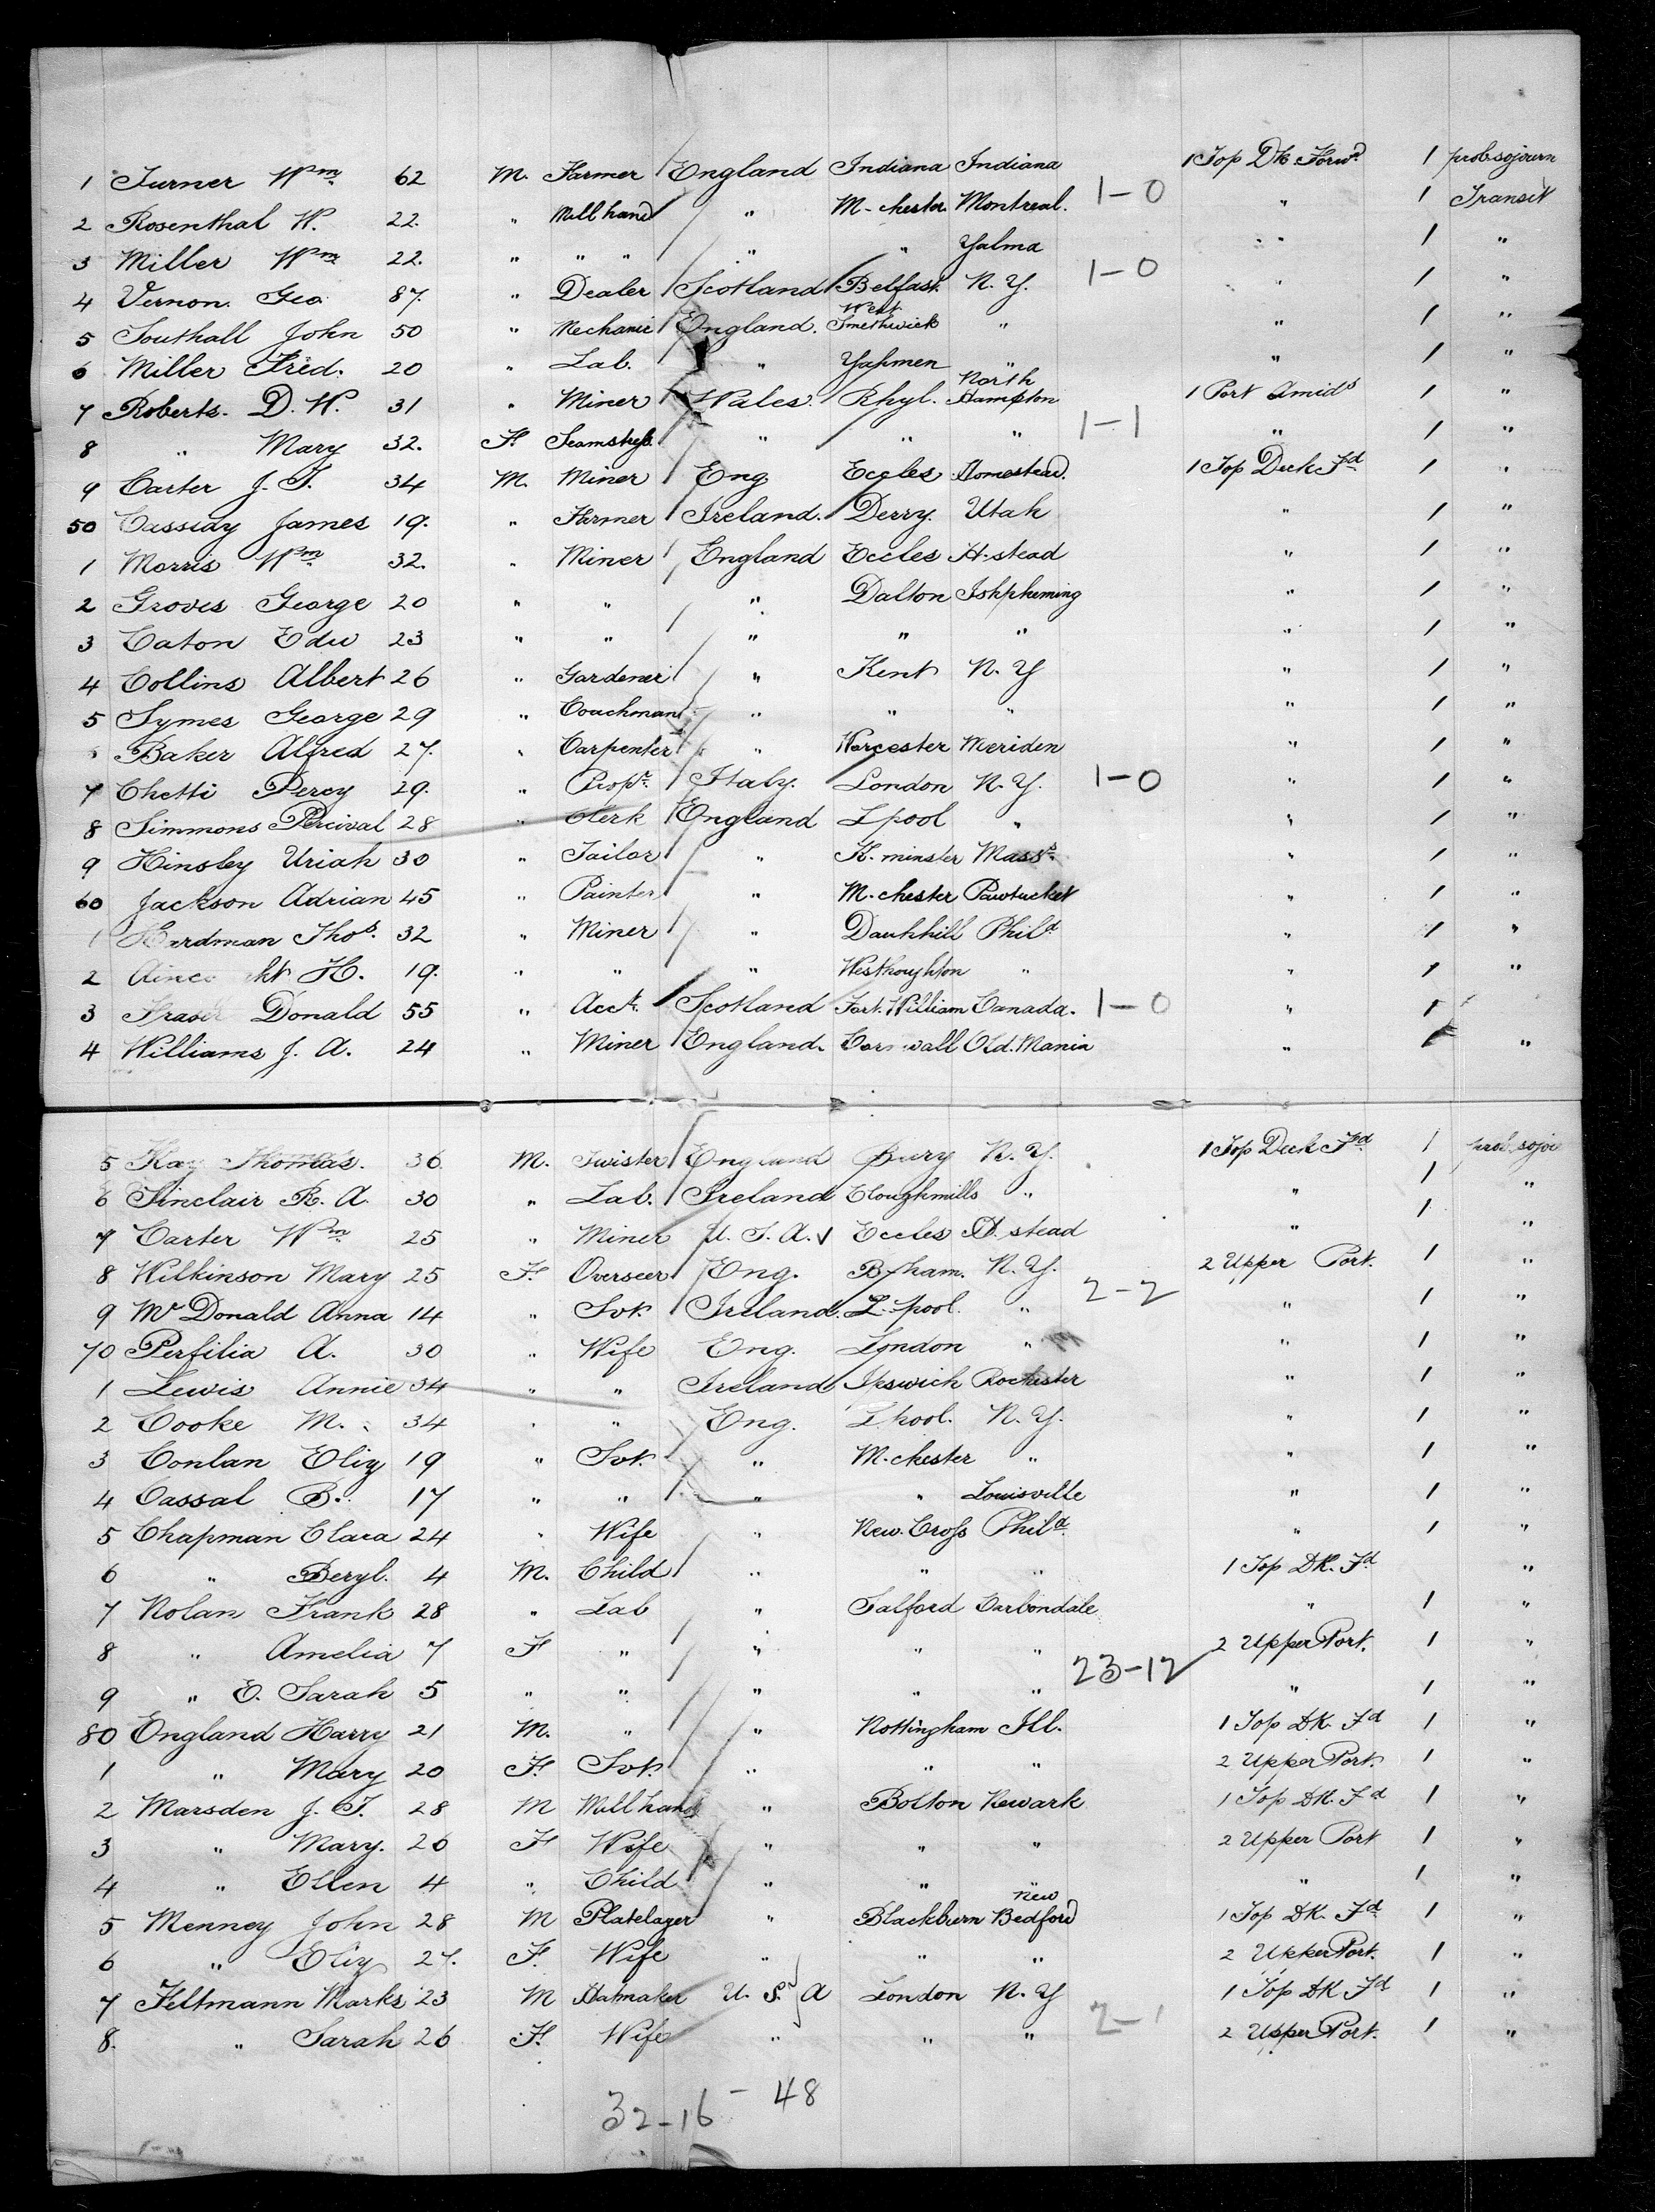 1 Turner Wm 62 M. Farmer England Indiana Indiana 1 Top Dk. Forwd 1 prob sojourn
2 Rosenthal W. 22. " Mill hand " M-chester Montreal. 1-0 " 1 Transit
3 Miller Wm 22. " " " " " Yalma " 1 "
4 Vernon. Geo 87. " Dealer Scotland Belfast. N.Y. 1-0 " 1 "
5 Southall John 50 " Mechanic England. West Smethwick " " 1 "
6 Miller Fred. 20 " Lab. " Yapmen " " 1 "
7 Roberts. D.W. 31 " Miner Wales. Rhyl. North Hampton 1 Port Amids 1 "
8 " Mary 32. F. Seamstress. " " " 1-1 " 1 "
9 Carter J.T. 34 M. Miner Eng. Eccles Homestead. 1 Top Deck Fd 1 "
50 Cassidy James 19. " Farmer Ireland. Derry. Utah " 1 "
1 Morris Wm 32. " Miner England Eccles H-stead " 1 "
2 Groves George 20 " " " Dalton Ishpheming " 1 "
3 Eaton Edw 23 " " " " " " 1 "
4 Collins Albert 26 " Gardener " Kent N.Y " 1 "
5 Symes George 29 " Coachman " " " " 1 "
Baker Alfred 27. " Carpenter " Worcester Meriden " 1 "
7 Chetti Percy 29. " Propr. Italy. London N.Y. 1-0 " 1 "
8 Simmons Percival 28 " Clerk England L pool " " 1 "
9 Hinsley Uriah 30 " Tailor " K. minster Mass. " 1 "
60 Jackson Adrian 45 " Painter " M. chester Pawtucket " 1 "
1 Hardman Thos. 32 " Miner " Daukhill Phila " 1 "
2 H. 19. " " " Westhoughton " " 1 "
3 Fraser Donald 55 " Acct. Scotland Fort. William Canada. 1-0 " 1
4 Williams J.A. 24 " Miner England. Cornwall Old. Mania " 1 "
5 Kay Thomas. 36. M. Twister England Bury N.Y. 1 Top Deck Fd 1 prob. sojo
6 Sinclair R.A. 30 " Lab. Ireland Cloughmills " " 1 "
7 Carter Wm 25 " Miner U.S.A. Eccles H. stead " 1 "
8 Wilkinson Mary 25 F. Overseer Eng. B-ham. N.Y. 2-2 2 Upper Port. 1 "
9 McDonald Anna 14 " Svt. Ireland. L-pool. " " 1 "
70 Perfilia A. 30 " Wife Eng. London " " 1 "
1 Lewis Annie 34 " " Ireland Ipswich Rochester " 1 "
2 Cooke M. 34 " " Eng. L pool. N.Y. " 1 "
3 Conlan Eliz 19 " Svt. " M.chester " " 1 "
4 Cassal B. 17 " " " " Louisville " 1 "
5 Chapman Clara 24 " Wife " New. Cross Phila " 1 "
6 " Beryl. 4 M. Child " " " 1 Top DK. Fd "
7 Nolan Frank 28 " Lab " Salford Carbondale " 1 "
8 " Amelia 7 F " " " " 2 Upper Port. 1 "
9 " E. Sarah 5 " " " " " 23-12 " 1 "
80 England Harry 21 M. " " Nottingham Ill. 1 Top DK. Fd 1 "
1 " Mary 20 F. Svt. " " " 2 Upper Port. 1 "
2 Marsden J.T. 28 M Mill hand " Bolton Newark 1 Top DK. Fd 1 "
3 " Mary. 26 F Wife " " " 2 Upper Port 1 "
4 " Ellen 4 " Child " " " " 1 "
5 Menney John 28 M Platelayer " Blackburn New Bedford 1 Top DK. Fd 1 "
6 " Eliz 27. F. Wife " " " 2 Upper Port. 1 "
7 Feltmann Marks 23 M Hatmaker U.S.A London N.Y 1 Top DK Fd 1 "
8. " Sarah 26 F. Wife " " " 2-1 2 Upper Port. 1 "
32-16 - 48